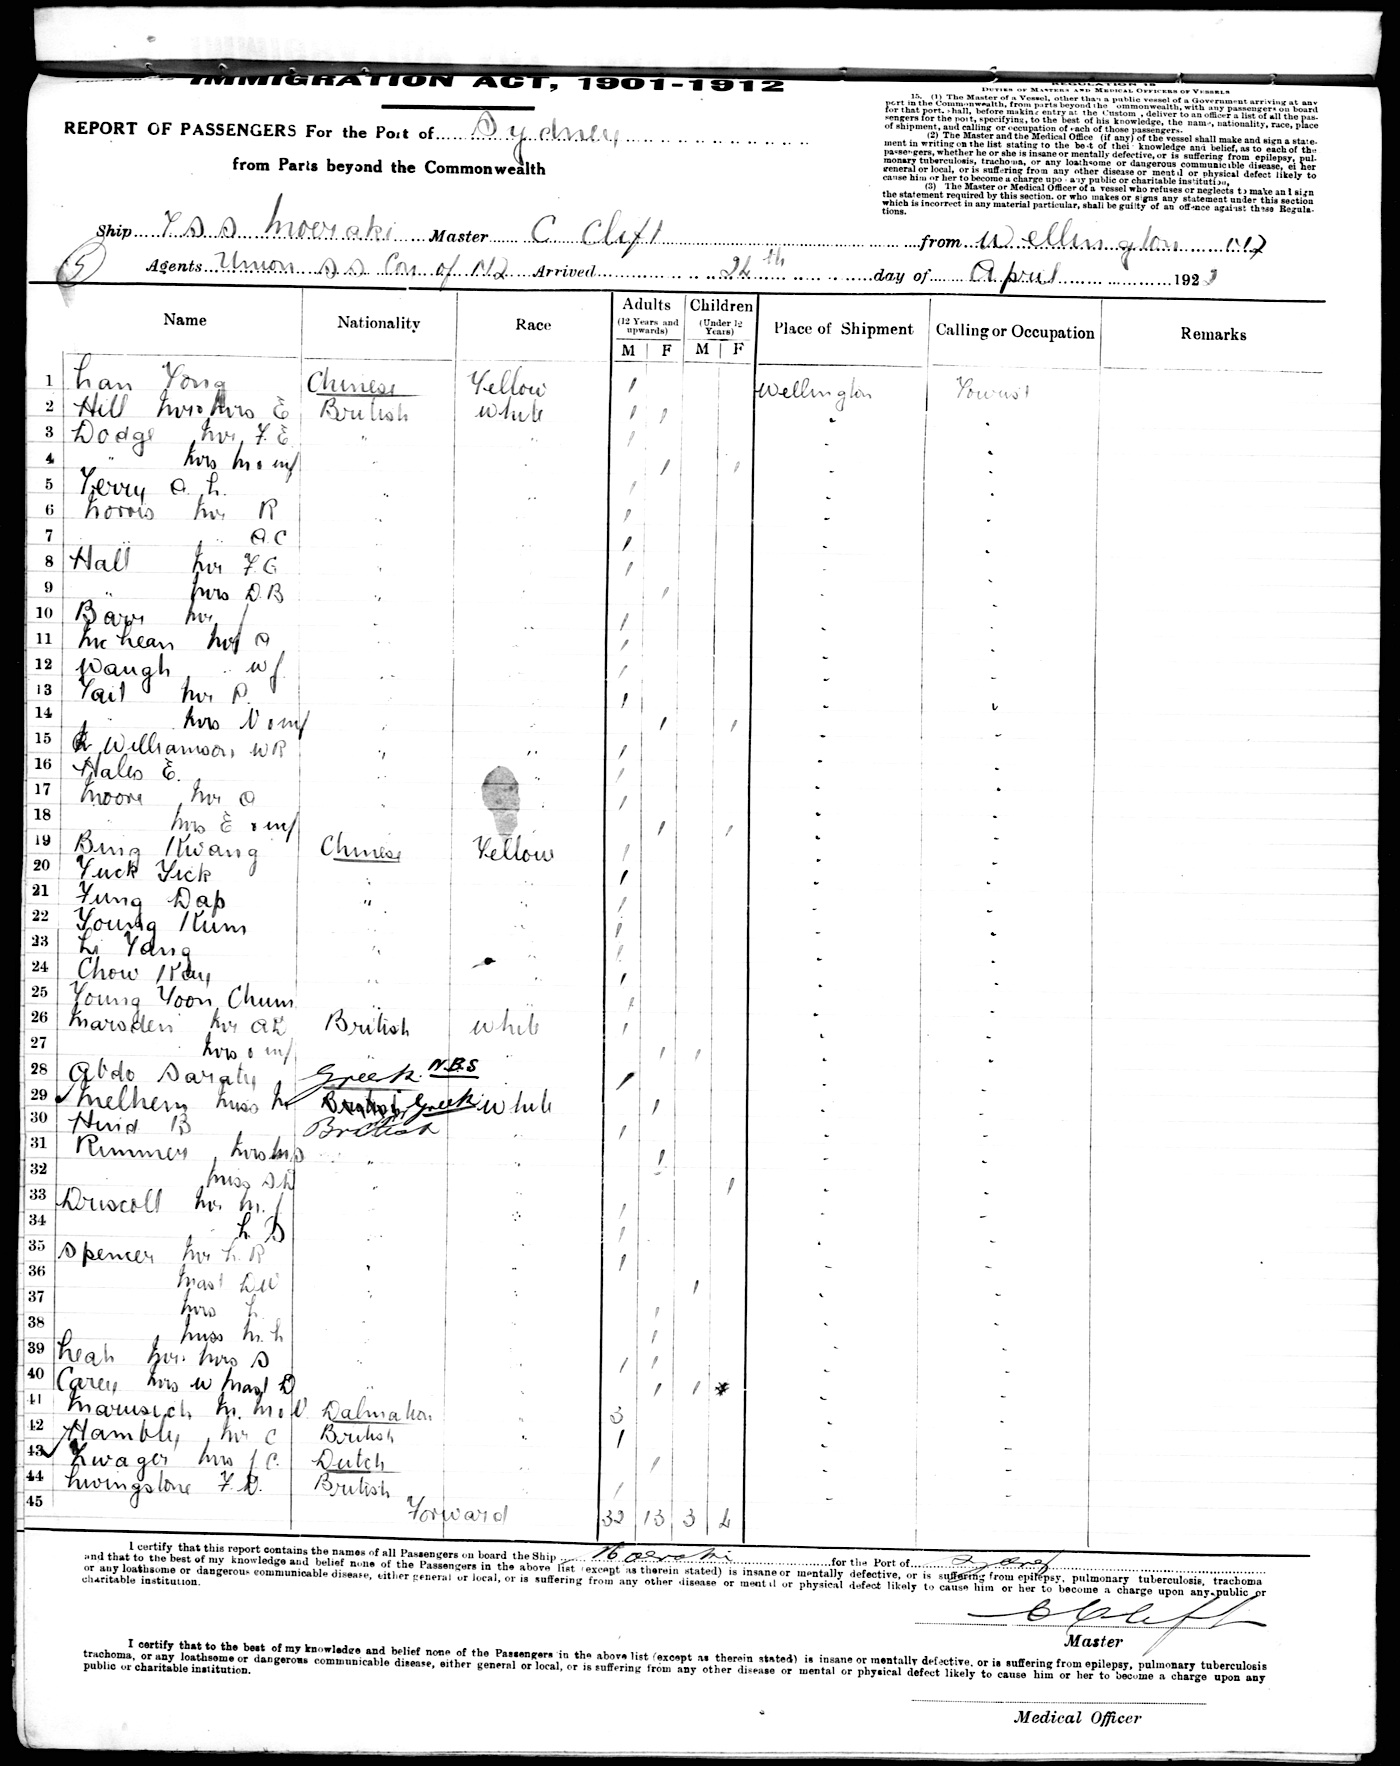 IMMIGRATION ACT, 1901-1912
REPORT OF PASSENGERS For the Port of Sydney
from Parts beyond the Commonwealth
DUTIES OF MASTERS AND MEDICAL OFFICERS OF VESSELS
15. (1) The Master of a Vessel, other than a public vessel of a Government arriving at any
port in the Commonwealth, from parts beyond the ommonwealth, with any passengers on board
for that port, shall, before making entry at the Custom, deliver to an officer a list of all the pas-
sengers for the port, specifying, to the best of his knowledge, the name, nationality, race, place
of shipment, and calling or occupation of each of those passengers.
(2) The Master and the Medical Office (if any) of the vessel shall make and sign a state-
ment in writing on the list stating to the best of their knowledge and belief, as to each of the
passengers, whether he or she is insane or mentally defective, or is suffering from epilepsy, pul-
monary tuberculosis, trachoma, or any loathsome or dangerous communicable disease, ei her
general or local, or is suffering from any other disease or mental or physical defect likely to
cause him or her to become a charge upon any public or charitable institution.
(3) The Master or Medical Officer of a vessel who refuses or neglects to make and sign
the statement required by this section, or who makes or signs any statement under this section
which is incorrect in any material particular, shall be guilty of an offence against these Regula-
tions.
Ship T S S Moeraki Master C Clift from Wellington NZ
5 Agents Union S S Coy of NZ Arrived 24th day of April 192
Name Nationality Race Adults (12 Years and upwards) M F Children (Under 12 Years) M F Place of Shipment Calling or Occupation Remarks
1 Lan Yong Chinese Yellow 1 Wellington Tourist
2 Hill Mr & Mrs E British White 1 1 "
3 Dodge Mr F. E. " " 1 "
4 " Mrs M & inf 1 1
5 Terry A. L. 1
6 Norris Mr R 1
7 " " A C 1
8 Hall Mr F. G 1
9 " Mrs D. B 1
10 Barr Mr J 1
11 McLean Mr A 1
12 Waugh " W J 1
13 Tait Mr P. 1
14 " Mrs V & inf 1 1
15 Williamson W R 1
16 Hales E. 1
17 Moore Mr A 1
18 Mrs E & inf 1 1
19 Bing Kwang Chinese Yellow 1
20 Yuck Yick 1
21 Fung Dap " 1
22 Young Kum 1
23 Li Yang 1
24 Chow Kay 1
25 Young Yoon Chum 1
26 Marsden Mr A L British White 1
27 Mrs & inf 1 1
28 Abdo Saraty Greek N.B.S 1
29 Melhem Miss M British Greek White 1
30 Hind B British 1
31 Rimmer Mrs M S 1
32 Miss S D 1
33 Driscoll Mr M. J 1
34 L S 1
35 Spencer Mr L. R 1
36 Mast D W 1
37 Mrs L 1
38 Miss M. L 1
39 Leah Mr & Mrs S 1 1
40 Carey Mrs W Mast D 1 1
41 Marusich M. M & V Dalmation 3
42 Hambly Mr C British 1
43 Zwager Mrs J C. Dutch 1
44 Livingstone F. D. British 1
45 Forward 32 13 3 4
I certify that this report contains the names of all Passengers on board the Ship Moeraki for the Port of Sydney
and that to the best of my knowledge and belief none of the Passengers in the above list (except as therein stated) is insane or mentally defective, or is suffering from epilepsy, pulmonary tuberculosis, trachoma
or any loathsome or dangerous communicable disease, either general or local, or is suffering from any other disease or mental or physical defect likely to cause him or her to become a charge upon any public or
charitable institution.
C Clift
Master
I certify that to the best of my knowledge and belief none of the Passengers in the above list (except as therein stated) is insane or mentally defective, or is suffering from epilepsy, pulmonary tuberculosis
trachoma, or any loathsome or dangerous communicable disease, either general or local, or is suffering from any other disease or mental or physical defect likely to cause him or her to become a charge upon any
public or charitable institution.
Medical Officer